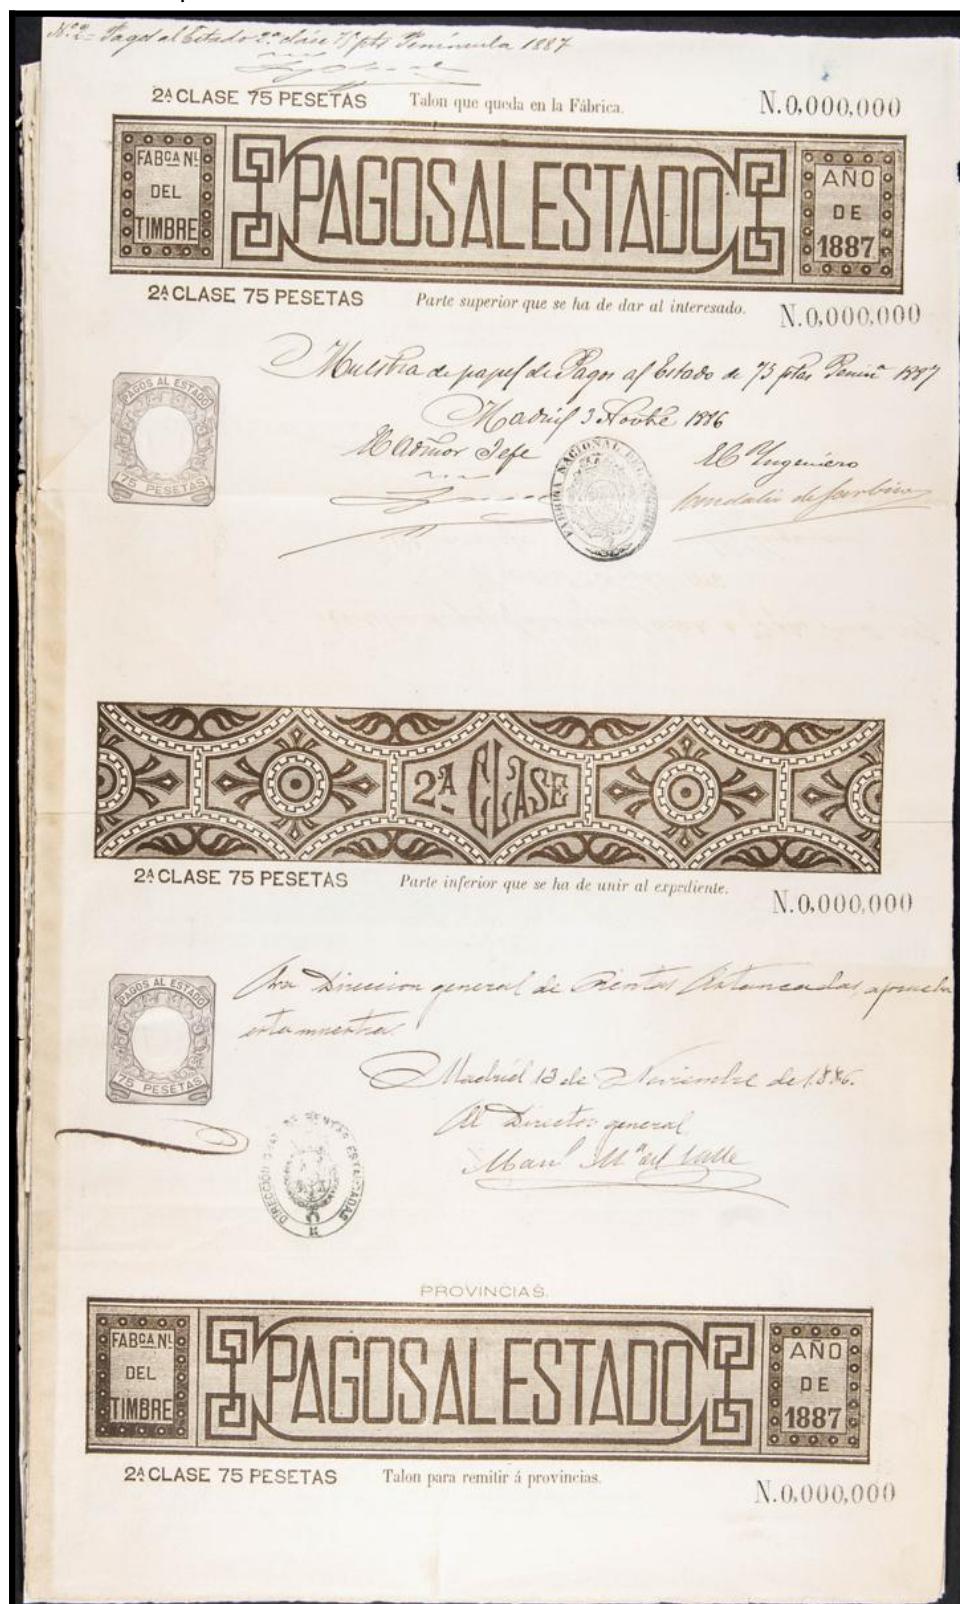 N.º 2= Pagos al Estado 2.ª clase 75 pts Peninsula 1887
2ª CLASE 75 PESETAS Talon que queda en la Fábrica. N.0,000,000
FABCA NL DEL TIMBRE
PAGOS AL ESTADO
AÑO DE 1887
2ª CLASE 75 PESETAS Parte superior que se ha de dar al interesado. N.0,000,000
Muestra de papel de Pagos al Estado de 75 ptas Peninª 1887
PAGOS AL ESTADO
75 PESETAS
Madrid 3 Novbre 1886
El Admor Jefe
El Ingeniero
FÁBRICA NACIONAL DEL
2ª CLASE
2ª CLASE 75 PESETAS Parte inferior que se ha de unir al expediente. N.0,000,000
PAGOS AL ESTADO
75 PESETAS
Direccion general de Rentas Estancadas, aprueba
esta muestra.
Madrid 13 de Noviembre de 1886.
El Director general
Manl Mª del Valle
DIRECCIÓN GRAL DE RENTAS ESTANCADAS
PROVINCIAS.
FABCA NL DEL TIMBRE
PAGOS AL ESTADO
AÑO DE 1887
2ª CLASE 75 PESETAS Talon para remitir á provincias. N.0,000,000